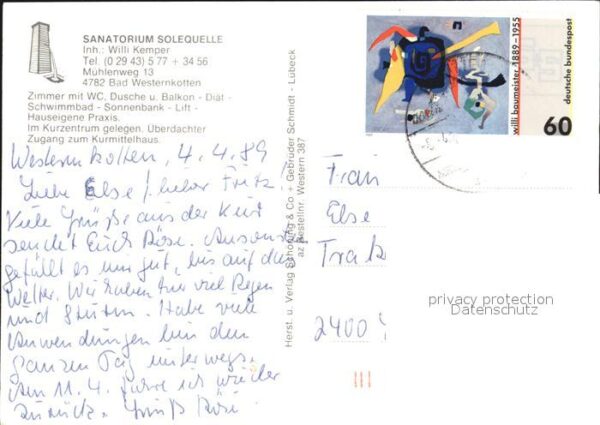 SANATORIUM SOLEQUELLE
Inh.: Willi Kemper
Tel. (0 29 43) 5 77 + 34 56
Mühlenweg 13
4782 Bad Westernkotten
Zimmer mit WC, Dusche u. Balkon - Diät -
Schwimmbad - Sonnenbank - Lift -
Hauseigene Praxis.
Im Kurzentrum gelegen. Überdachter
Zugang zum Kurmittelhaus.
Westernkotten, 4.4.89
Liebe Else / lieber Fritz!
Viele Grüße aus der Kur
sendet Euch Rösi. Ansonsten
gefällt es mir gut, bis auf das
Wetter. Wir haben hier viel Regen
und Sturm. Habe viele
Anwendungen bin den
ganzen Tag unterwegs.
Am 11.4. fahre ich wieder
zurück. Gruß Rösi
Herst. u. Verlag Schöning & Co + Gebrüder Schmidt - Lübeck
az Bestellnr. Western 387
willi baumeister 1889-1955
deutsche bundespost
60
Frau
Else
2400
privacy protection
Datenschutz